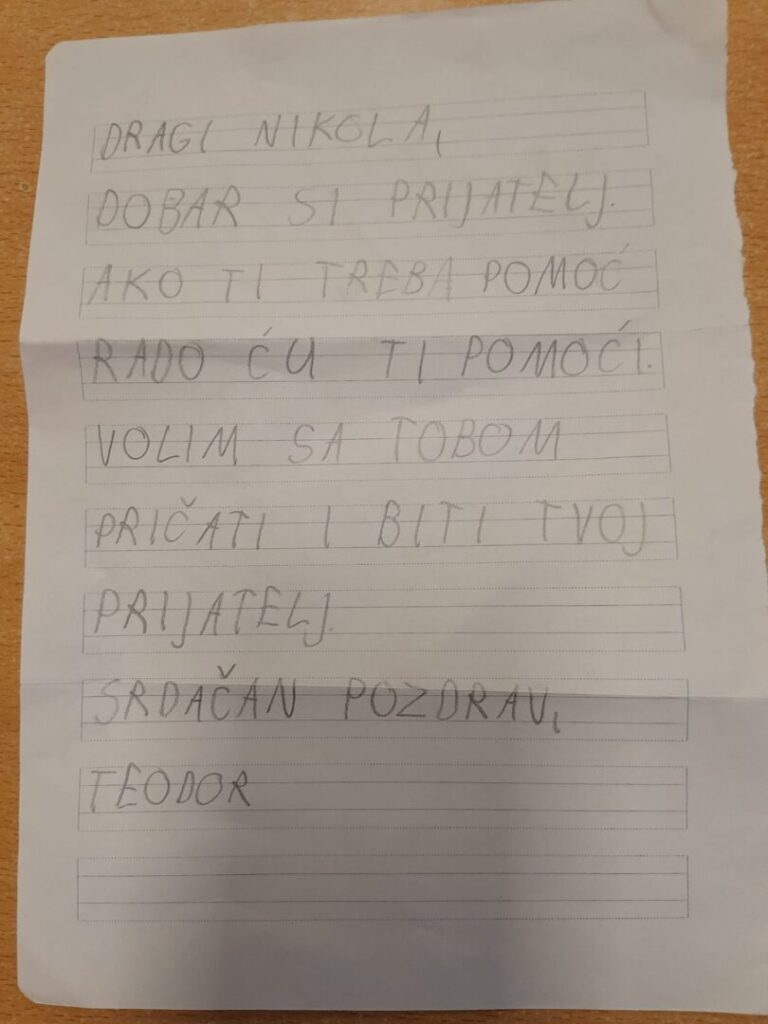 DRAGI NIKOLA,
DOBAR SI PRIJATELJ.
AKO TI TREBA POMOĆ
RADO ĆU TI POMOĆI.
VOLIM SA TOBOM
PRIČATI I BITI TVOJ
PRIJATELJ.
SRDAČAN POZDRAV,
TEODOR